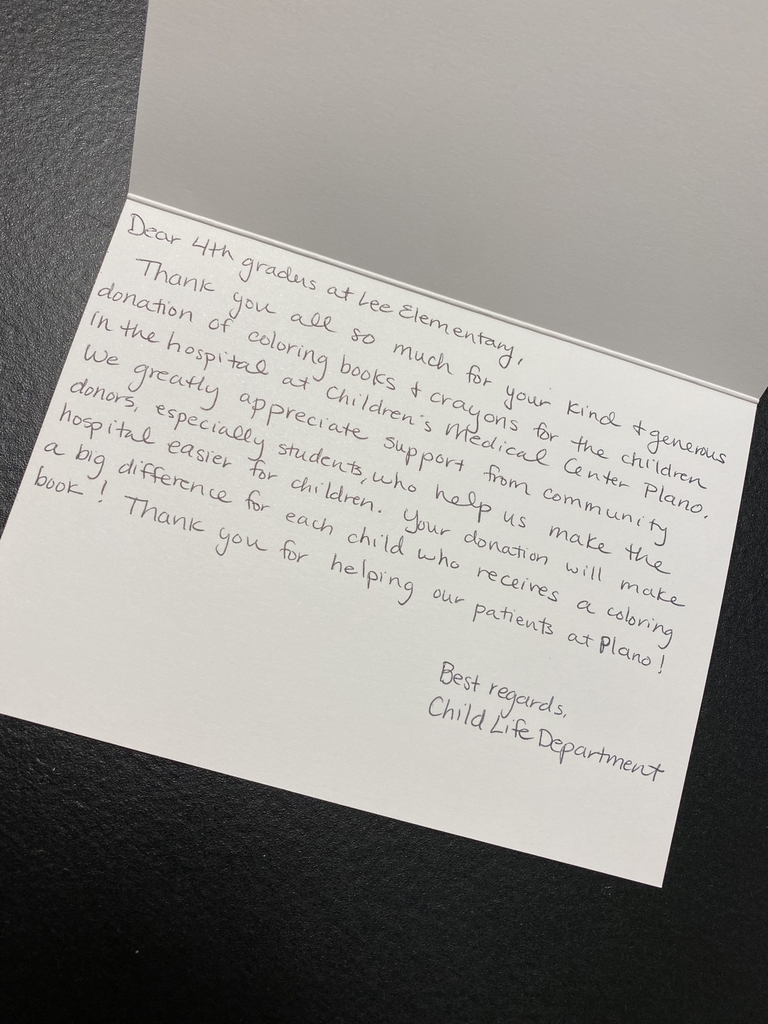 Dear 4th graders at Lee Elementary,
Thank you all so much for your kind & generous
donation of coloring books & crayons for the children
in the hospital at Children's Medical Center Plano.
We greatly appreciate support from community
donors, especially students, who help us make the
hospital easier for children. Your donation will make
a big difference for each child who receives a coloring
book! Thank you for helping our patients at Plano!
Best regards,
Child Life Department